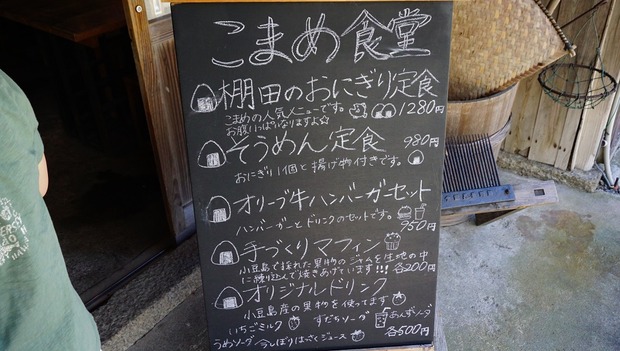 こまめ食堂
棚田のおにぎり定食
こまめの人気メニューです。
お腹いっぱいになりますよ☆
1280円
そうめん定食
980円
おにぎり1個と揚げ物付きです。
オリーブ牛ハンバーガーセット
ハンバーガーとドリンクのセットです。
950円
手づくりマフィン
小豆島で採れた果物のジャムを生地の中
に練り込んで焼きあげています!!! 各200円
オリジナルドリンク
小豆島産の果物を使ってます
いちごミルク すだちソーダ あんずソーダ
うめソーダ 今しぼりはっさくジュース 各500円